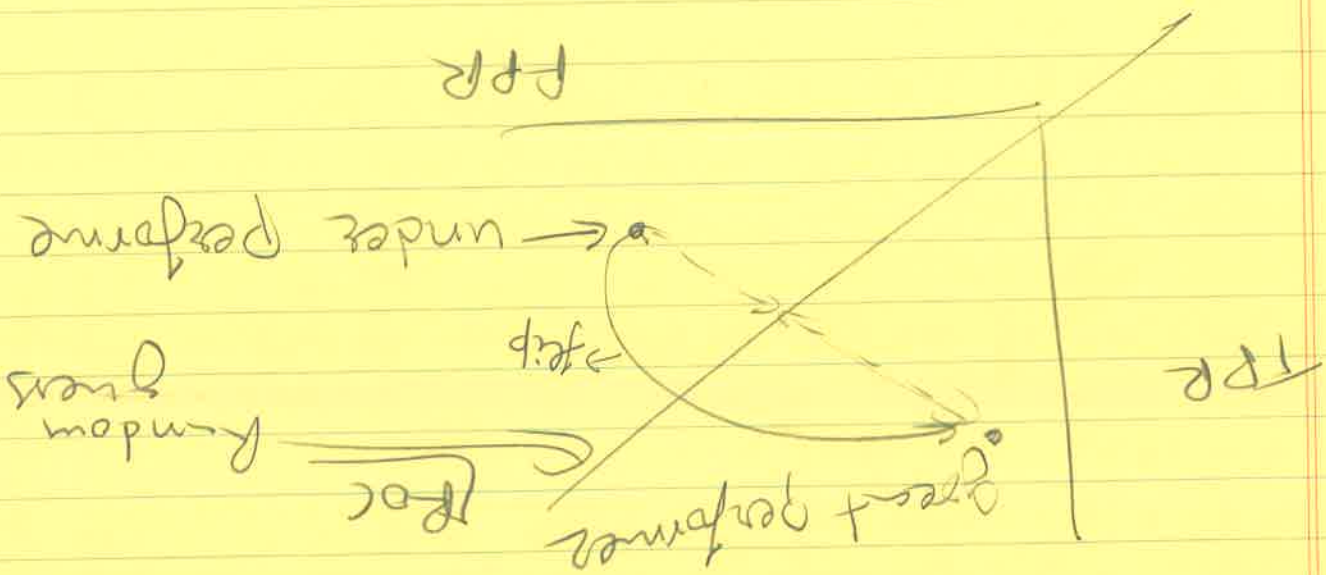 great performer
ROC
Random
guess
TPR
flip
under performe
FPR